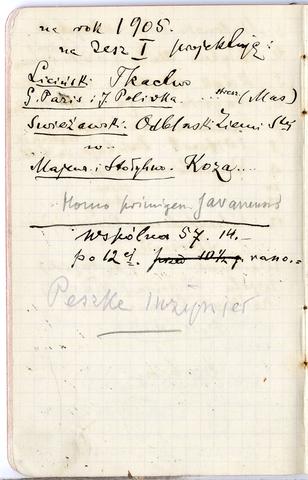 na rok 1905.
na zesz I projektuję:
Liciński Tkactwo
G. Paris i J. Polivka. ... (Mas)
Świeżawski: Odblaski Ziemi
w
Majew. i Stołyhwo. Koza....
Homo primigen. Javanensis
Wspólna 57. 14.-
po 12 ej. przed 10½ g. rano.=
Peszke inżynier